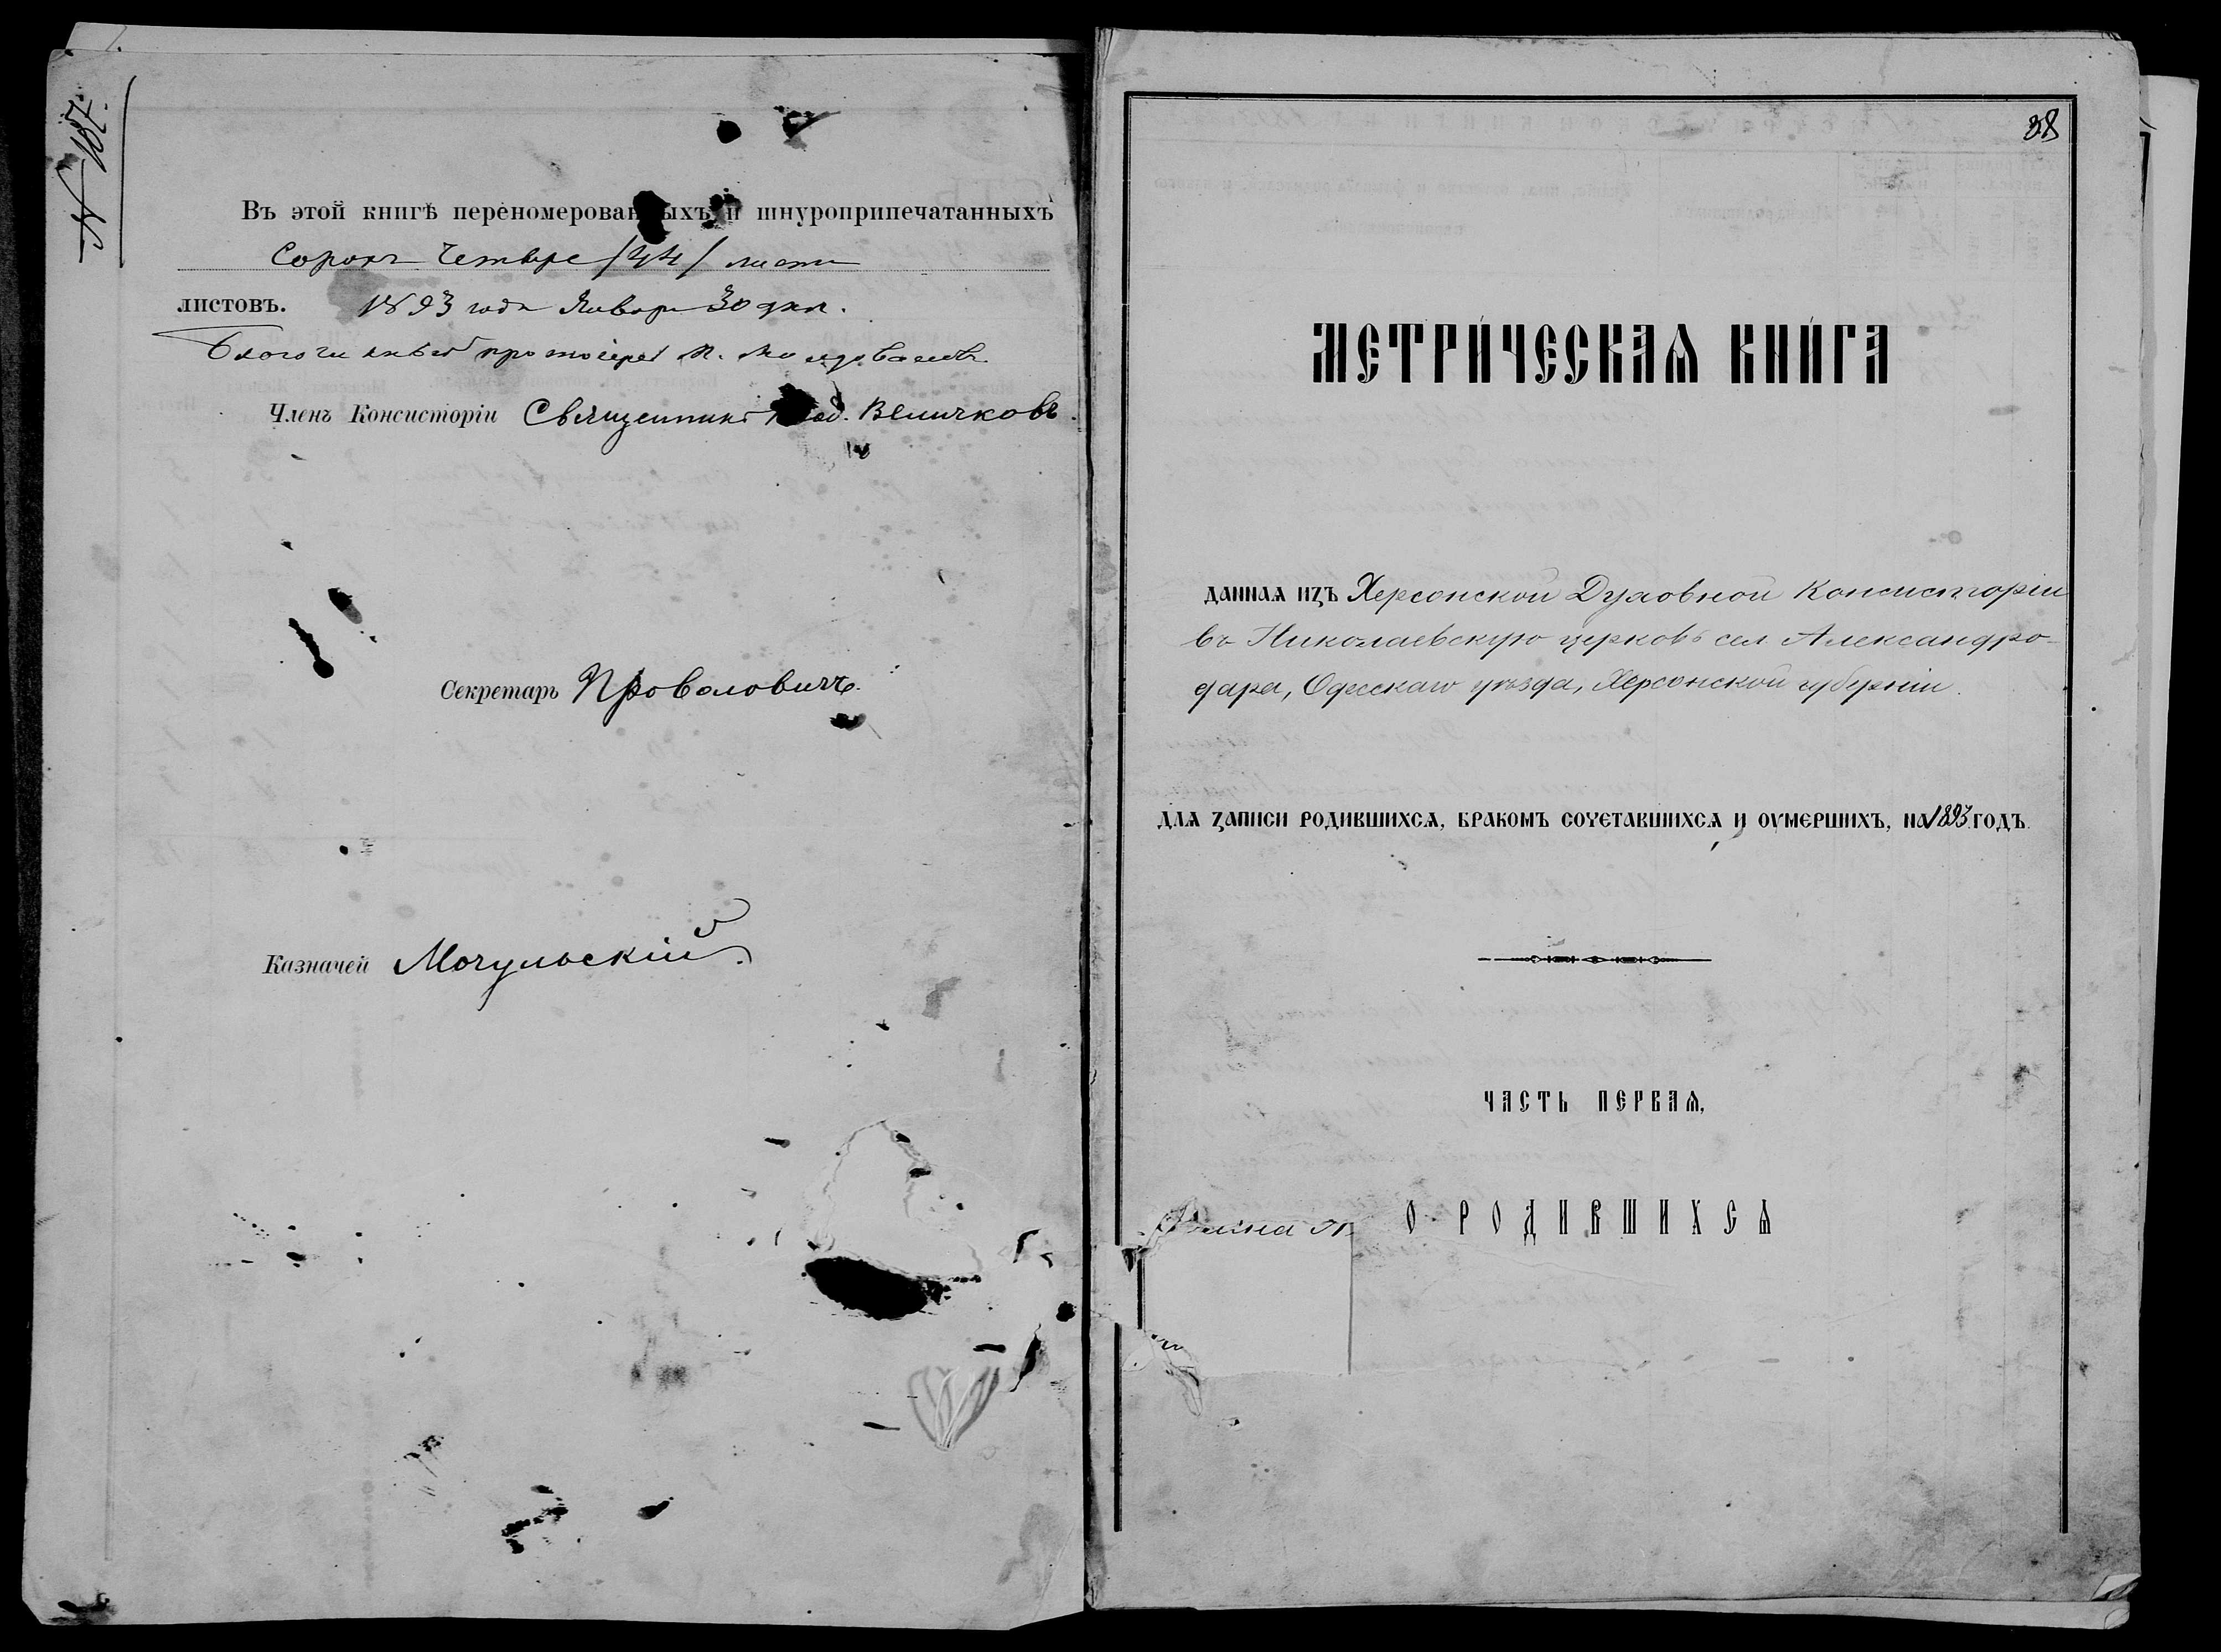 № 187.
Въ этой книгѣ переномерованныхъ и шнуроприпечатанныхъ
Сорокъ Четыре /44/ листа
листовъ. 1893 года Января 30 дня.
Благочинный протоіерей
Членъ Консисторіи Священникъ Величковъ.
Секретарь
Казначей Мочульскій.
38
МЕТРИ́ЧЕСКАѦ КНИ́ГА
ДАННАѦ ИꙀЪ Херсонской Духовной Консисторіи
въ Николаевскую церковь сел. Александро-
дара, Одесскаго уѣзда, Херсонской губерніи.
ДЛѦ ꙀАПИСИ РОДИВШИХСѦ, БРАКОМЪ СОЧЕТАВШИХСѦ И ОУМЕРШИХЪ, НА 1893 ГОДЪ.
ЧАСТЬ ПЕРВАѦ,
О РОДИВШИХСѦ